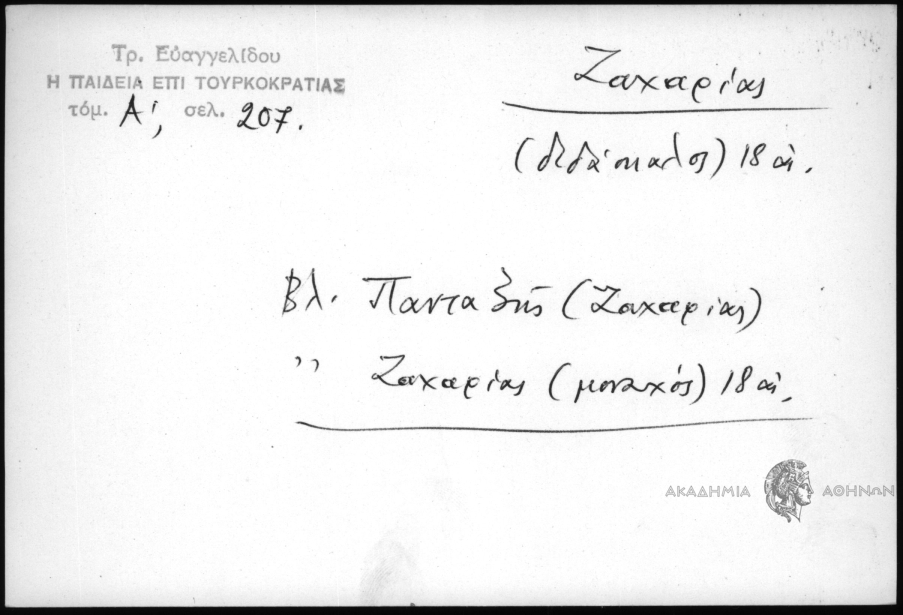 Τρ. Εὐαγγελίδου
Η ΠΑΙΔΕΙΑ ΕΠΙ ΤΟΥΡΚΟΚΡΑΤΙΑΣ
τόμ. Α', σελ. 207.
Ζαχαρίας
(διδάσκαλος) 18 αἰ.
Βλ. Πανταζῆς (Ζαχαρίας)
,, Ζαχαρίας (μοναχός) 18 αἰ.
ΑΚΑΔΗΜΙΑ ΑΘΗΝΩΝ